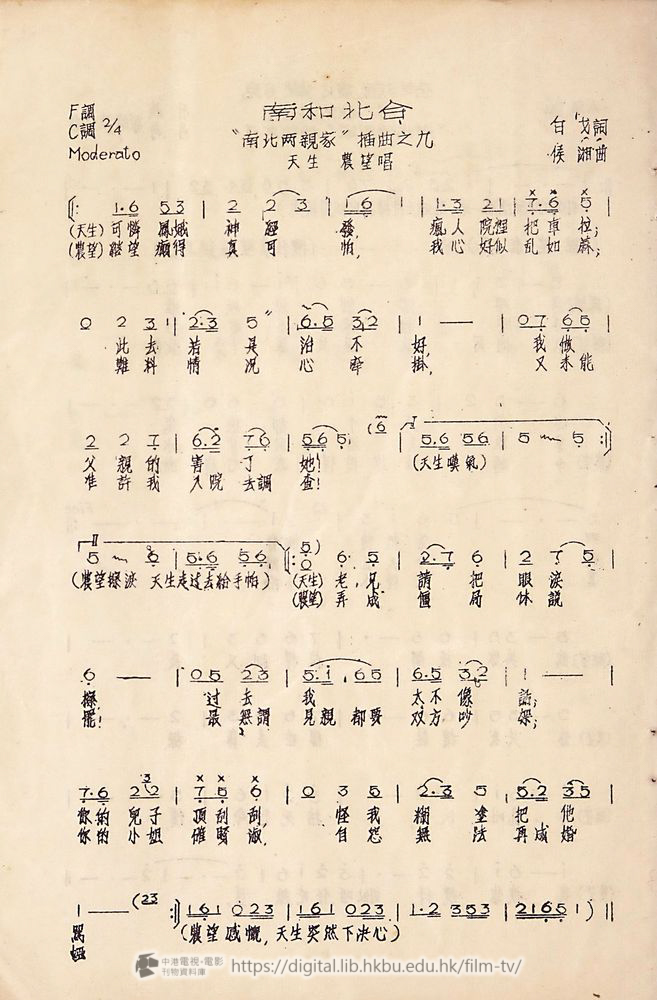 F調
C調 2/4
Moderato
南和北合
"南北两親家"插曲之九
天生 農望唱
白 戈詞
侯 湘曲
‖: 1·6 5 3 | 2 2 3 | 1 6 | 1·3 2 1 | 7·6 5 |
(天生) 可憐 鳳娥 神經 發, 瘋人院裡 把車拉;
(農望) 踏望 癲得 真可怕, 我心好似乱如蔴;
0 2 3 1 | 2·3 5 | 6·5 3 2 | 1 — | 0 7 6 5 |
此去若是治不好, 我做
難料情況心牽掛, 又未能
2 2 7 | 6·2 7 6 | 5 6 5 (6 | 5·6 5 6 | 5 5 :‖
父親的害了她! (天生嘆氣)
准許我入院去調查!
5 6 | 5·6 5 6 ‖: 5) 0 6 5 | 2·7 6 | 2 7 5 |
(農望擦淚 天生走过去給手帕) (天生) 老兄 請把眼淚
(農望) 弄成 僵局休説
6 — | 0 5 2 3 | 5·1 6 5 | 6·5 3 2 | 1 — |
擦, 过去我 太不像話;
罷! 最無謂見親都要双方吵架;
7·6 2 2 | 7 5 6 | 0 3 5 | 2·3 5 | 5·2 3 5 |
你的兒子頂刮刮, 怪我糊塗把他
你的小姐催賢淑, 自怨無法再成婚
1 — (23 :‖ 161 023 | 161 023 | 1·2 353 | 2165 1) ‖
罵
(農望感慨, 天生突然下决心)
中港電視·電影
刊物資料庫
https://digital.lib.hkbu.edu.hk/film-tv/